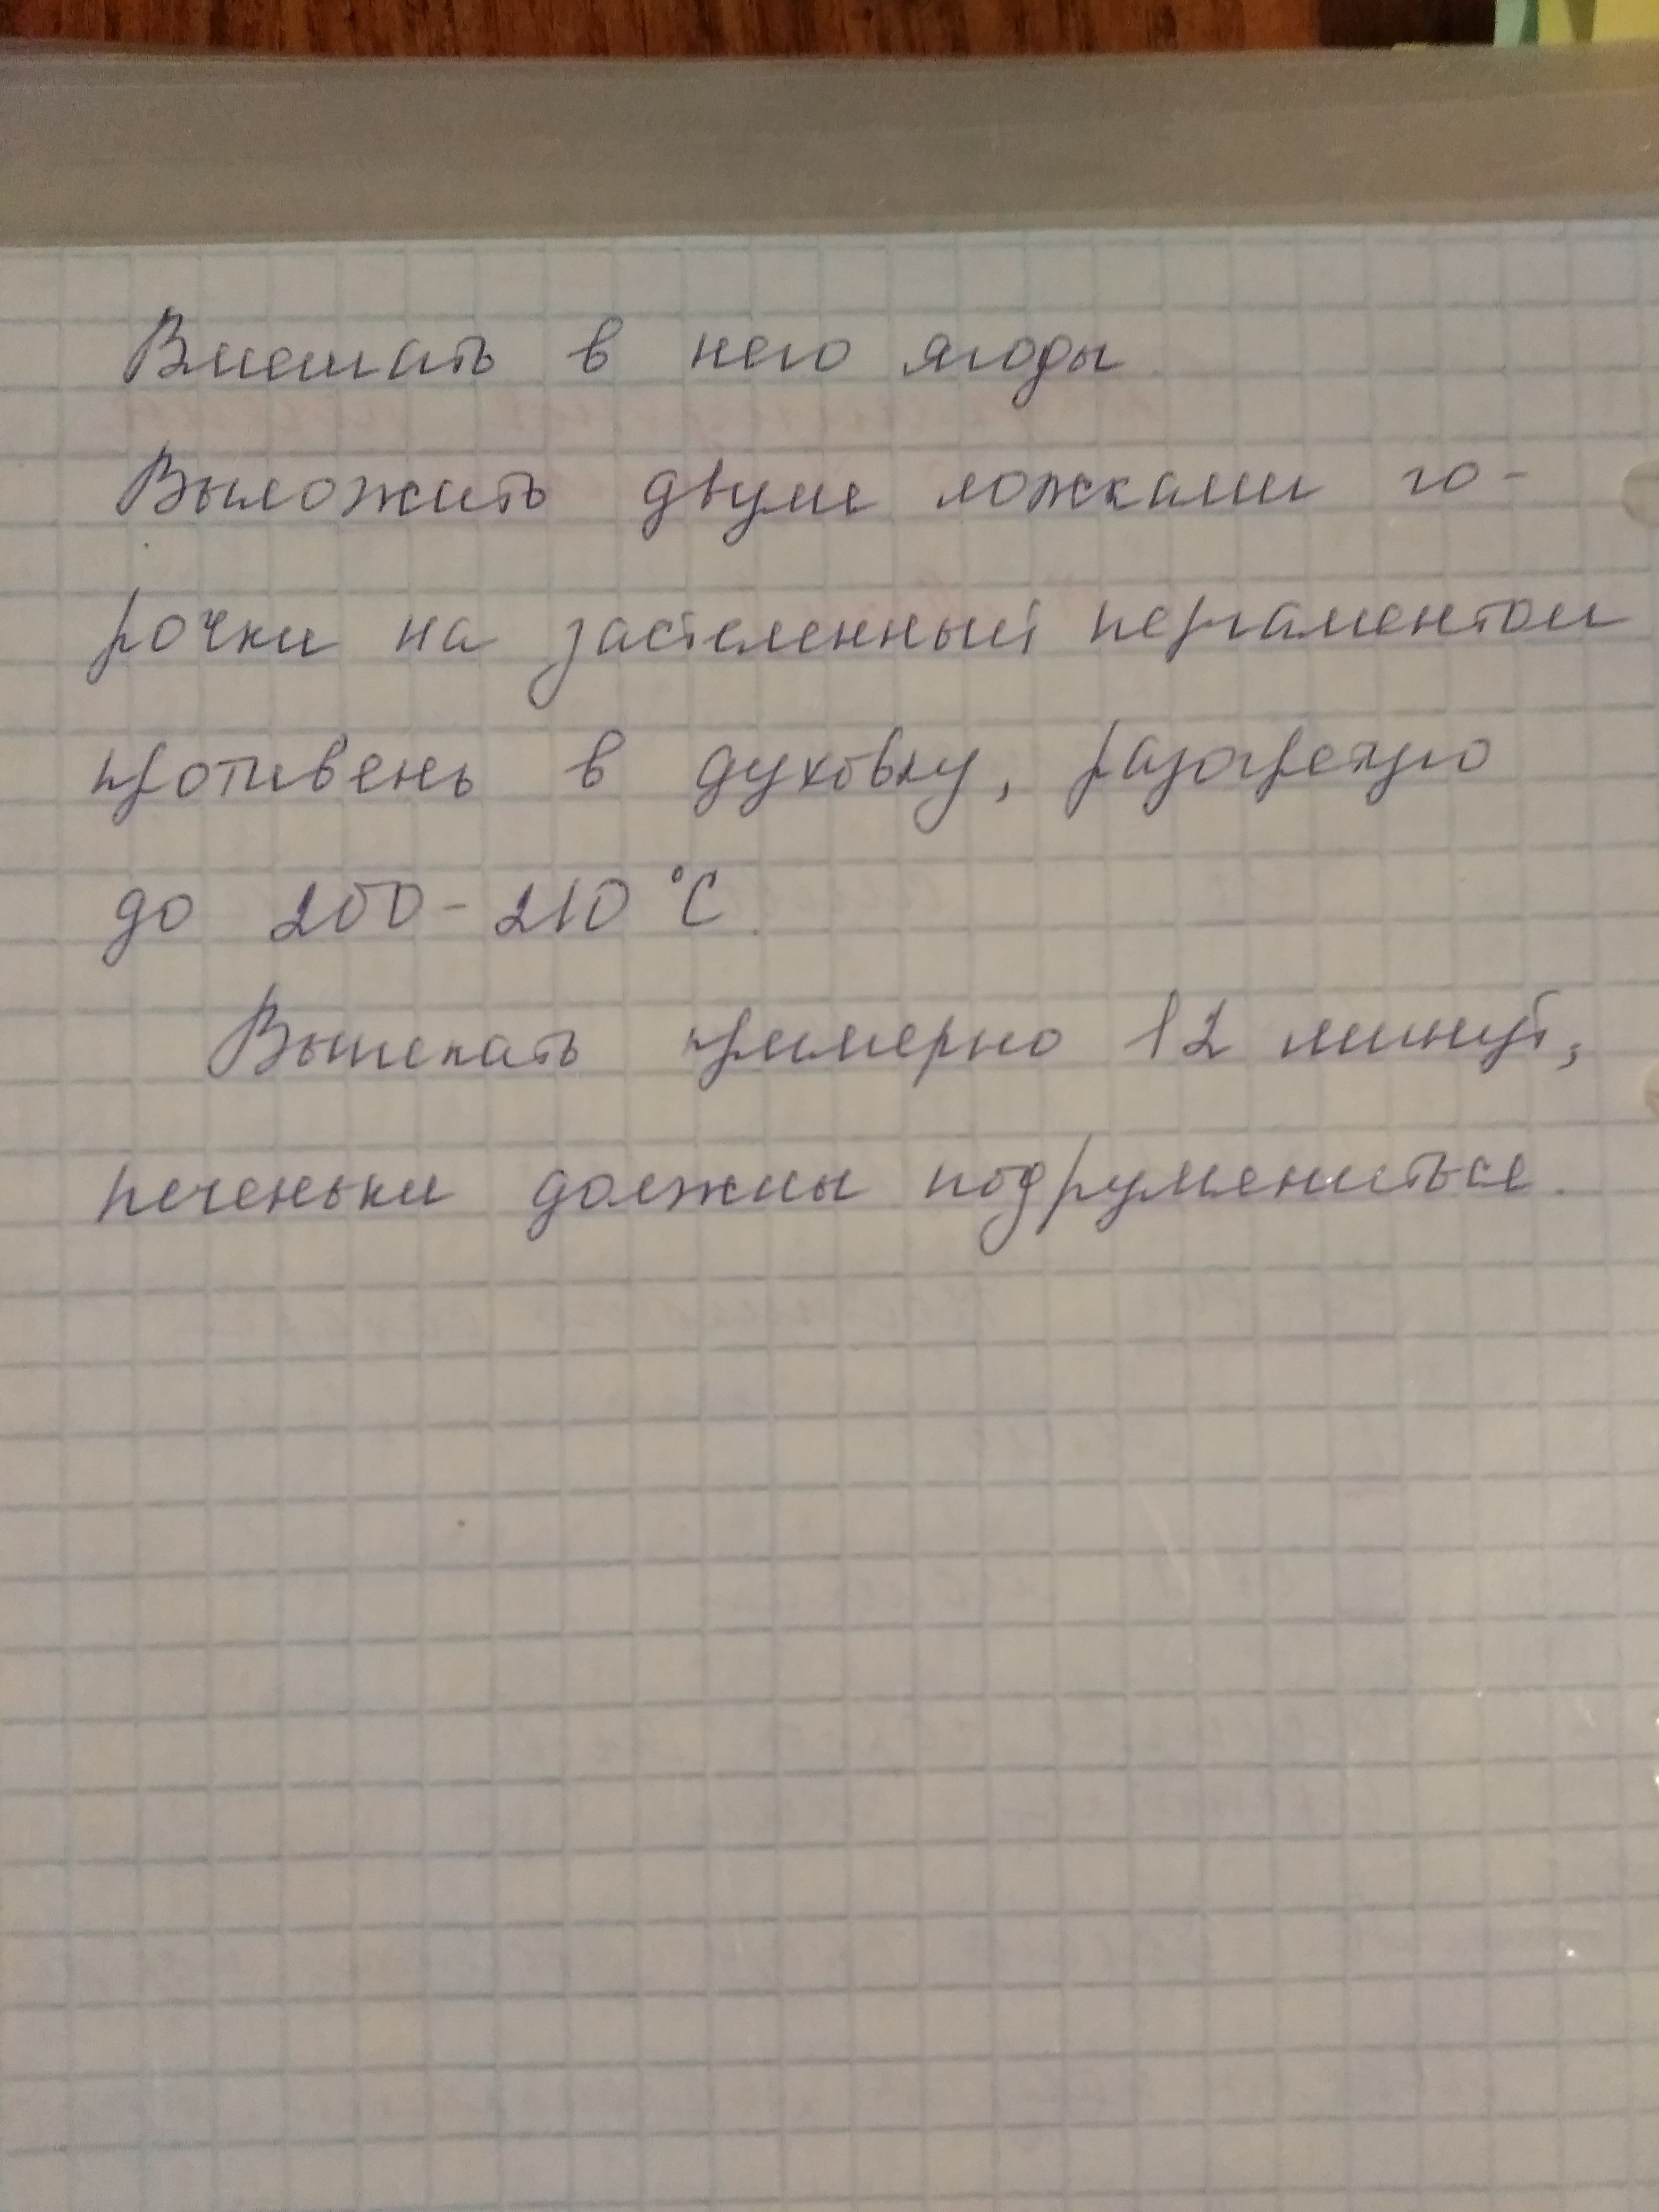 Вмешать в него ягоды.
Выложить двумя ложками го-
рочки на застеленный пергаментом
противень в духовку, разогретую
до 200-210 °С.
Выпекать примерно 12 минут,
печеньки должны подрумениться.